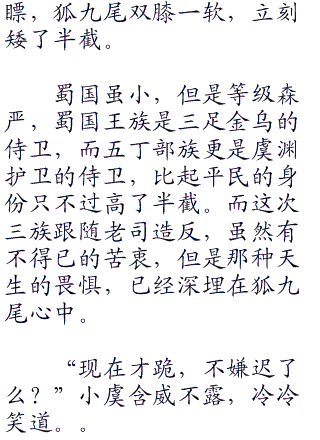 瞟，狐九尾双膝一软，立刻
矮了半截。
蜀国虽小，但是等级森
严，蜀国王族是三足金乌的
侍卫，而五丁部族更是虞渊
护卫的侍卫，比起平民的身
份只不过高了半截。而这次
三族跟随老司造反，虽然有
不得已的苦衷，但是那种天
生的畏惧，已经深埋在狐九
尾心中。
“现在才跪，不嫌迟了
么？”小虞含威不露，冷冷
笑道。。